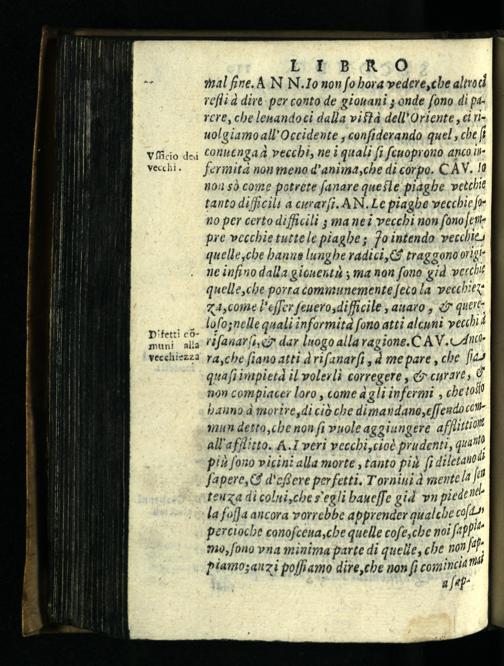 LIBRO
mal fine. ANN. Io non so hora vedere, che altro ci
resti à dire per conto de giouani; onde sono di pa-
rere, che leuandoci dalla vista dell'Oriente, ci ri-
uolgiamo all'Occidente, considerando quel, che si
conuenga à vecchi, ne i quali si scuoprono anco in-
fermità non meno d'anima, che di corpo. CAV. Io
non sò come potrete sanare queste piaghe vecchie
tanto difficili a curarsi. AN. Le piaghe vecchie so-
no per certo difficili; ma ne i vecchi non sono sem-
pre vecchie tutte le piaghe; Io intendo vecchie
quelle, che hanno lunghe radici, & traggono origi-
ne infino dalla giouentù; ma non sono già vecchie
quelle, che porta communemente seco la vecchiez-
za, come l'esser seuero, difficile, auaro, & quere-
loso; nelle quali informità sono atti alcuni vecchi à
risanarsi, & dar luogo alla ragione. CAV. Anco-
ra, che siano atti à risanarsi, à me pare, che sia
quasi impietà il volerli corregere, & curare, &
non compiacer loro, come à gli infermi, che tosto
hanno à morire, di ciò che dimandano, essendo com-
mun detto, che non si vuole aggiungere afflittione
all'afflitto. A. I veri vecchi, cioè prudenti, quanto
più sono vicini alla morte, tanto più si diletano di
sapere, & d'essere perfetti. Torniui à mente la sen
tenza di colui, che s'egli hauesse già vn piede nel-
la fossa ancora vorrebbe apprender qualche cosa,
percioche conosceua, che quelle cose, che noi sappia-
mo, sono vna minima parte di quelle, che non sap-
piamo; anzi possiamo dire, che non si comincia mai
a sap-
Vfficio dei
vecchi.
Difetti cõ-
muni alla
vecchiezza